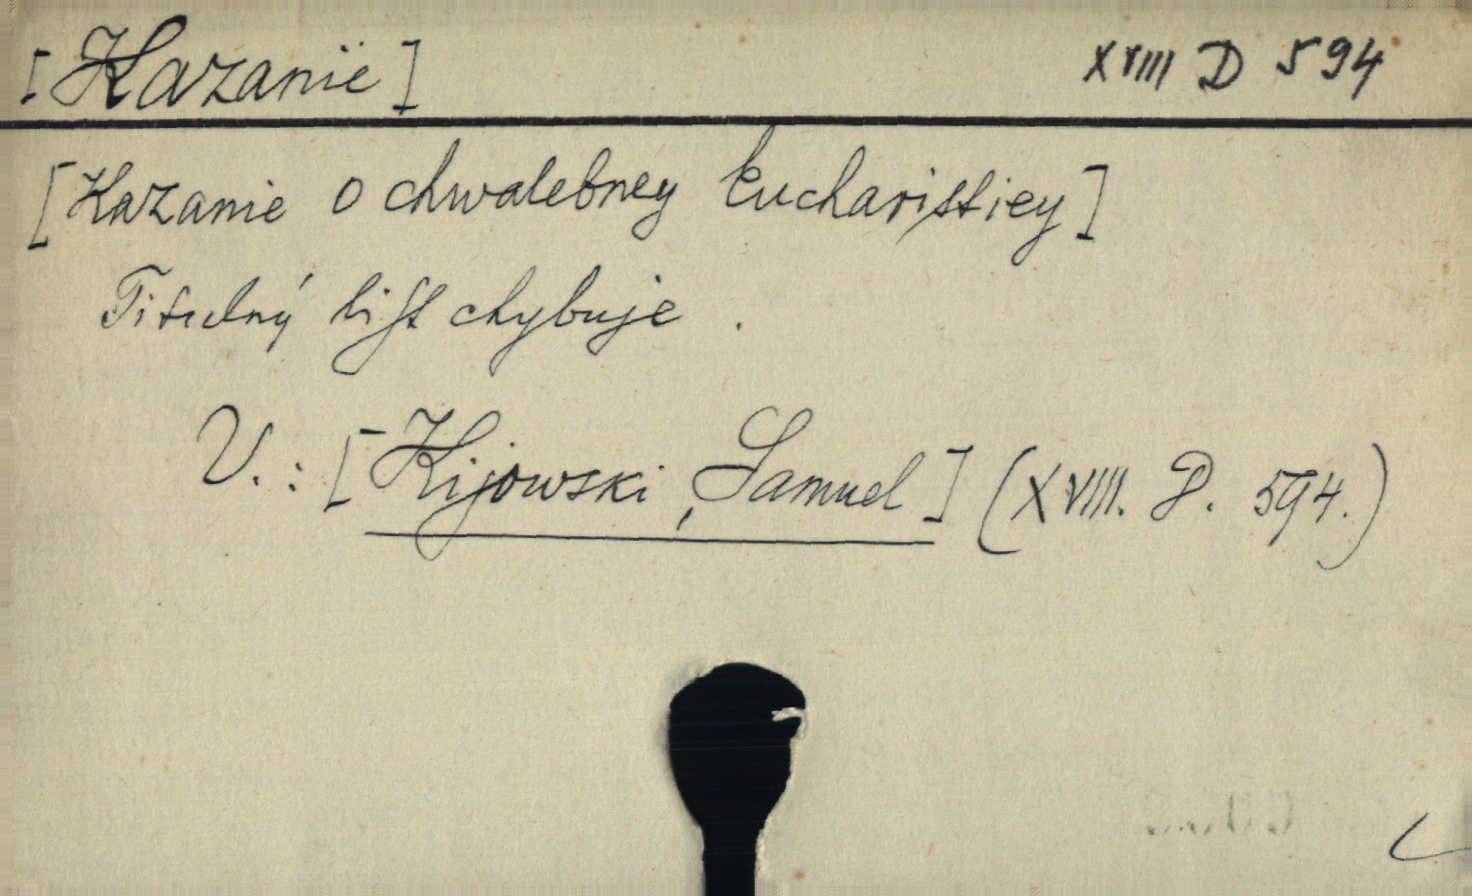 [Kazanie] XVIII D 594
[Kazanie o chwalebney Eucharistiey]
Titulný list chybuje.
V.: [Kijowski, Samuel] (XVIII. D. 594.)